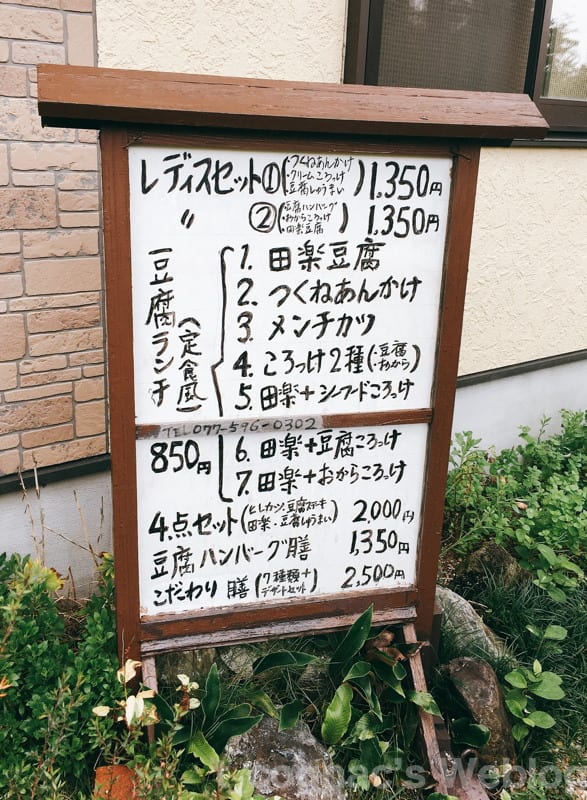 レディスセット①(・つくねあんかけ ・クリームころっけ ・豆腐しゅうまい) 1,350円
〃 ②(・豆腐ハンバーグ ・おからころっけ ・田楽豆腐) 1,350円
豆腐ランチ(定食風)
1. 田楽豆腐
2. つくねあんかけ
3. メンチカツ
4. ころっけ2種(・豆腐 ・おから)
5. 田楽+シーフードころっけ
TEL 077-596-0302
850円
6. 田楽+豆腐ころっけ
7. 田楽+おからころっけ
4点セット(ヒレカツ・豆腐ステーキ 田楽・豆腐しゅうまい) 2,000円
豆腐ハンバーグ膳 1,350円
こだわり膳(7種類+デザートセット) 2,500円
Cognac's Weblog